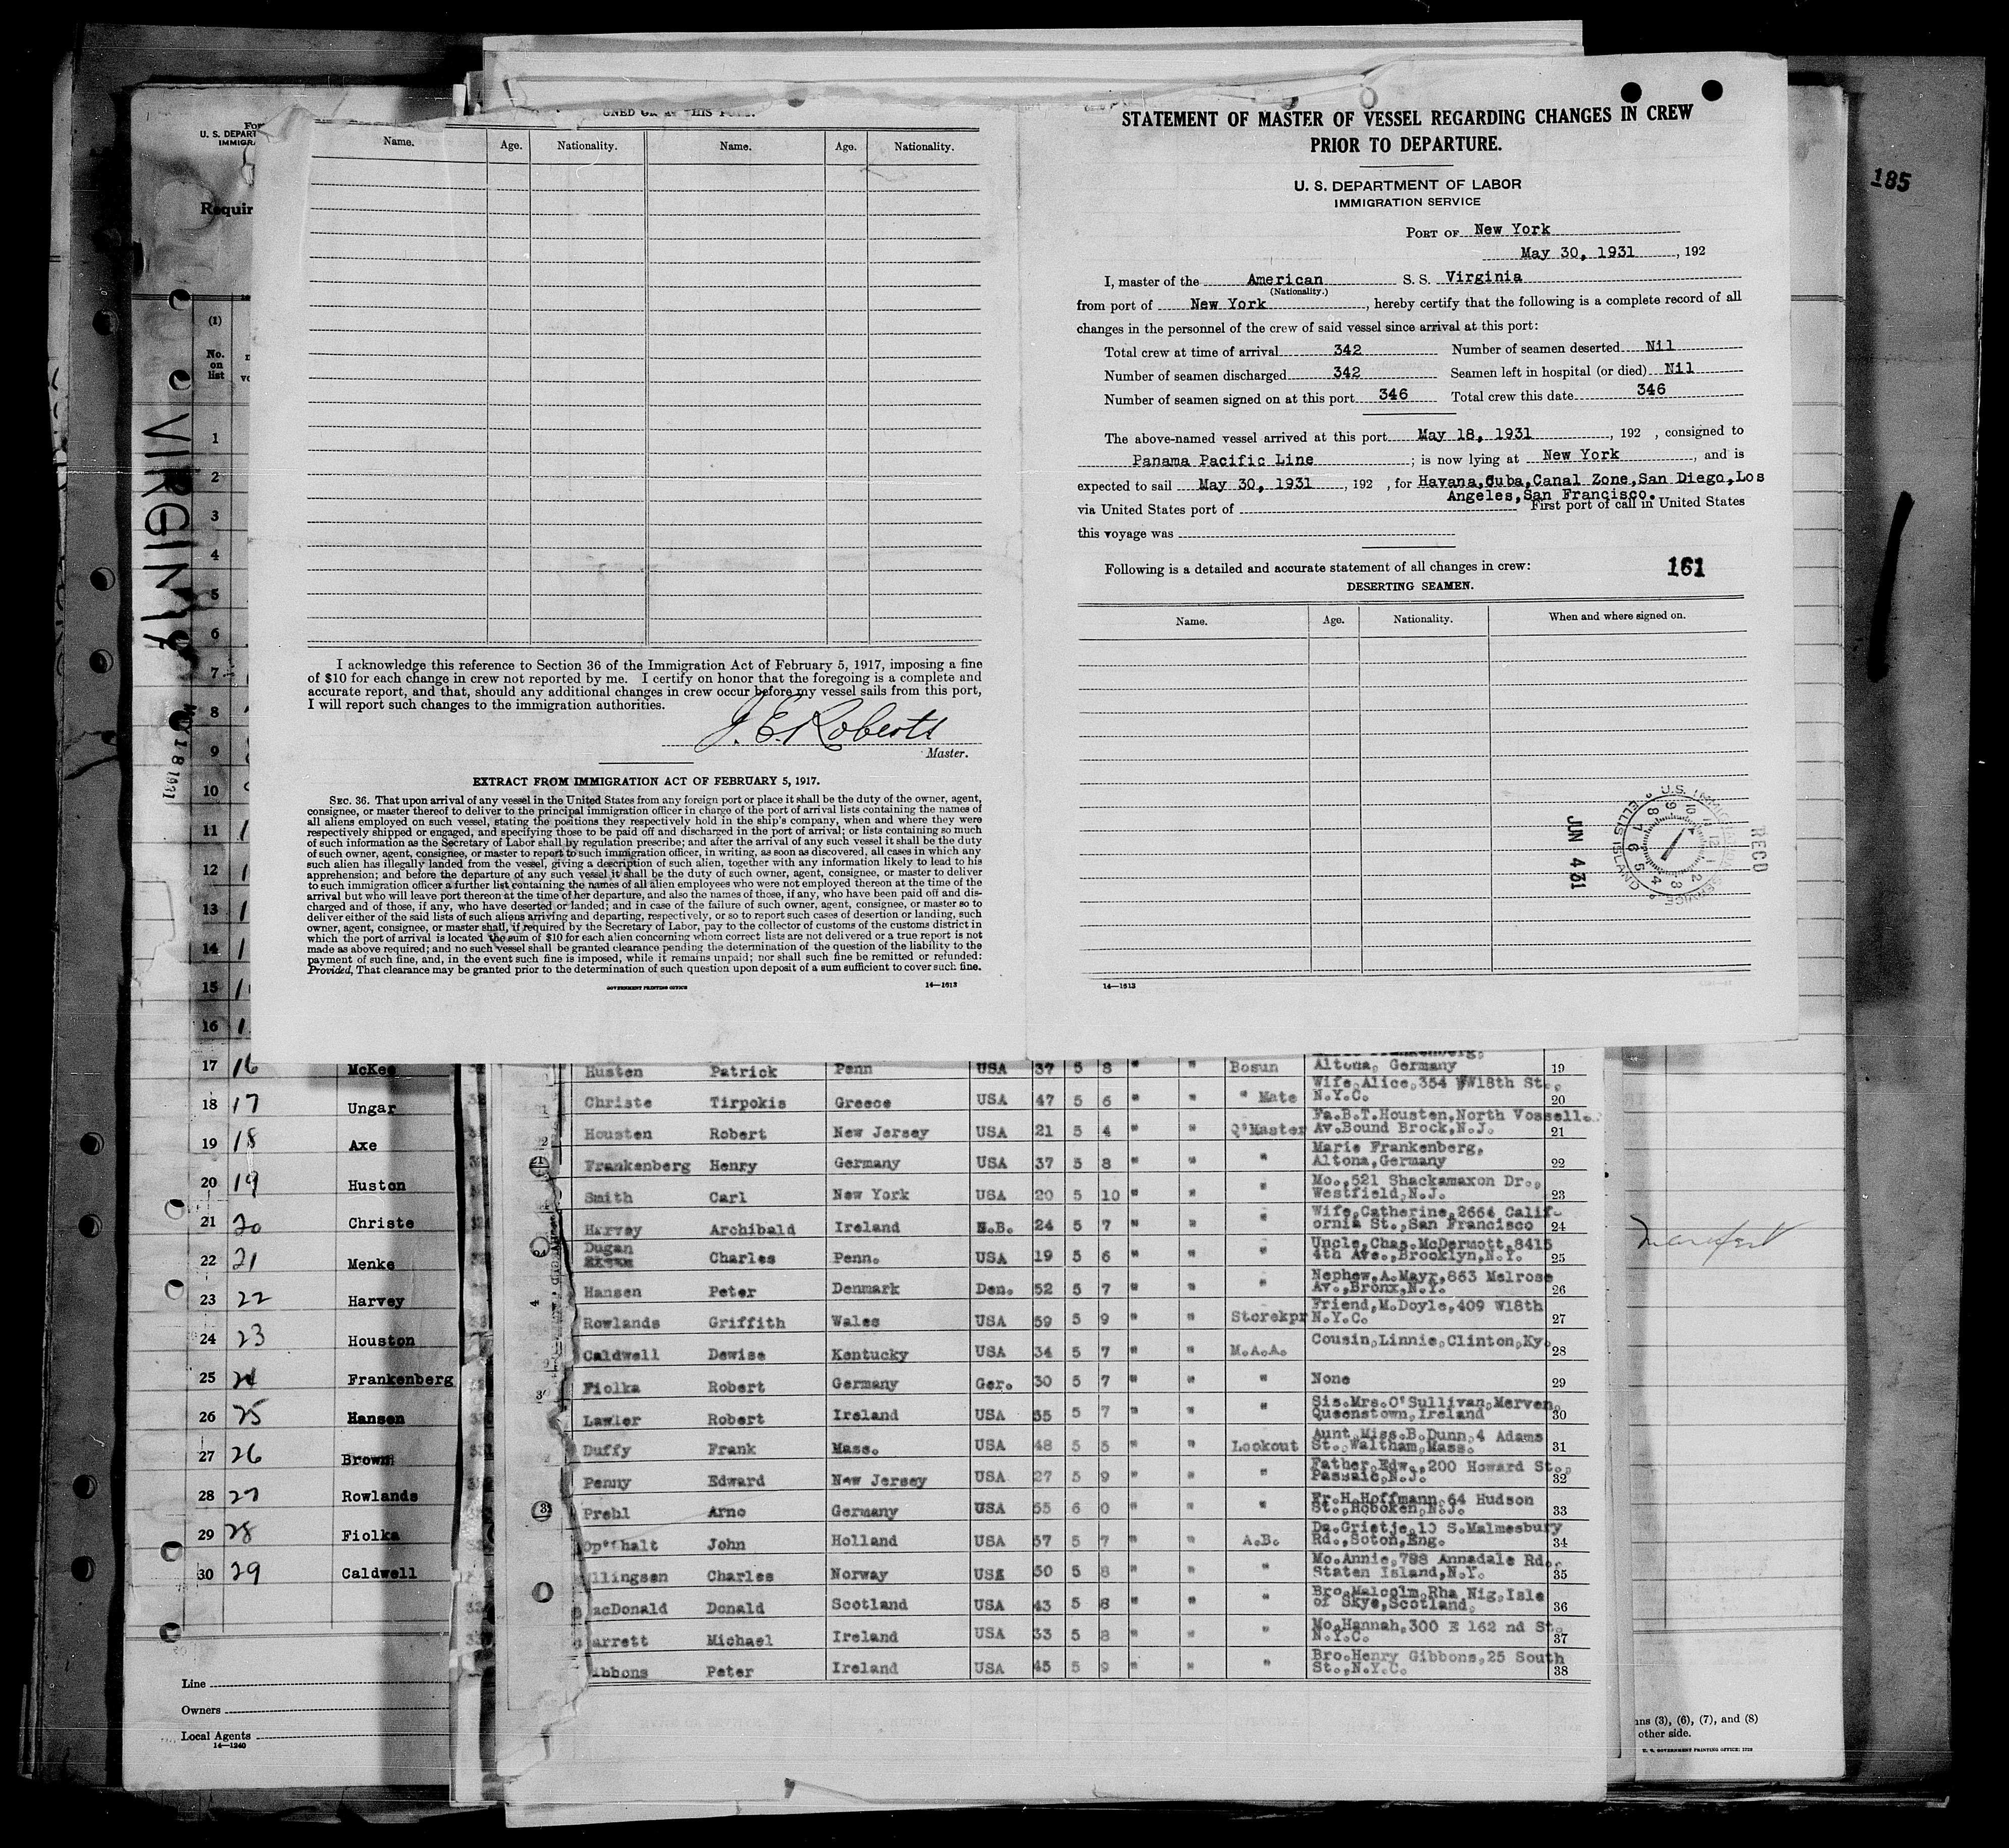 STATEMENT OF MASTER OF VESSEL REGARDING CHANGES IN CREW
PRIOR TO DEPARTURE.
U. S. DEPARTMENT OF LABOR
IMMIGRATION SERVICE
PORT OF New York
May 30, 1931, 192
I, master of the American S. S. Virginia
(Nationality.)
from port of New York, hereby certify that the following is a complete record of all
changes in the personnel of the crew of said vessel since arrival at this port:
Total crew at time of arrival 342 Number of seamen deserted Nil
Number of seamen discharged 342 Seamen left in hospital (or died) Nil
Number of seamen signed on at this port 346 Total crew this date 346
The above-named vessel arrived at this port May 18, 1931, 192 , consigned to
Panama Pacific Line; is now lying at New York, and is
expected to sail May 30, 1931, 192 , for Havana,Cuba,Canal Zone,San Diego,Los
Angeles,San Francisco.
via United States port of First port of call in United States
this voyage was
Following is a detailed and accurate statement of all changes in crew:
161
DESERTING SEAMEN.
Name. Age. Nationality. When and where signed on.
RECD
U.S. ELLIS ISLAND
JUN 4 31
14—1613
Name. Age. Nationality. Name. Age. Nationality.
I acknowledge this reference to Section 36 of the Immigration Act of February 5, 1917, imposing a fine
of $10 for each change in crew not reported by me. I certify on honor that the foregoing is a complete and
accurate report, and that, should any additional changes in crew occur before my vessel sails from this port,
I will report such changes to the immigration authorities.
J. E. Roberts
Master.
EXTRACT FROM IMMIGRATION ACT OF FEBRUARY 5, 1917.
SEC. 36. That upon arrival of any vessel in the United States from any foreign port or place it shall be the duty of the owner, agent,
consignee, or master thereof to deliver to the principal immigration officer in charge of the port of arrival lists containing the names of
all aliens employed on such vessel, stating the positions they respectively hold in the ship's company, when and where they were
respectively shipped or engaged, and specifying those to be paid off and discharged in the port of arrival; or lists containing so much
of such information as the Secretary of Labor shall by regulation prescribe; and after the arrival of any such vessel it shall be the duty
of such owner, agent, consignee, or master to report to such immigration officer, in writing, as soon as discovered, all cases in which any
such alien has illegally landed from the vessel, giving a description of such alien, together with any information likely to lead to his
apprehension; and before the departure of any such vessel it shall be the duty of such owner, agent, consignee, or master to deliver
to such immigration officer a further list containing the names of all alien employees who were not employed thereon at the time of the
arrival but who will leave port thereon at the time of her departure, and also the names of those, if any, who have been paid off and dis-
charged and of those, if any, who have deserted or landed; and in case of the failure of such owner, agent, consignee, or master so to
deliver either of the said lists of such aliens arriving and departing, respectively, or so to report such cases of desertion or landing, such
owner, agent, consignee, or master shall, if required by the Secretary of Labor, pay to the collector of customs of the customs district in
which the port of arrival is located the sum of $10 for each alien concerning whom correct lists are not delivered or a true report is not
made as above required; and no such vessel shall be granted clearance pending the determination of the question of the liability to the
payment of such fine, and, in the event such fine is imposed, while it remains unpaid; nor shall such fine be remitted or refunded:
Provided, That clearance may be granted prior to the determination of such question upon deposit of a sum sufficient to cover such fine.
GOVERNMENT PRINTING OFFICE 14—1613
185
U. S. DEPART
IMMIGRA
Requir
(1)
No.
on
list
VIRGINIA
MAY 18 1931
1
2
3
4
5
6
7
8
9
10
11
12
13
14
15
16
17 16 McKee
18 17 Ungar
19 18 Axe
20 19 Huston
21 20 Christe
22 21 Menke
23 22 Harvey
24 23 Houston
25 24 Frankenberg
26 25 Hansen
27 26 Brown
28 27 Rowlands
29 28 Fiolka
30 29 Caldwell
Line
Owners
Local Agents
14—1240
Husten Patrick Penn USA 37 5 8 " " Bosun Altona, Germany 19
Christe Tirpokis Greece USA 47 5 6 " " " Mate Wife,Alice,354 W18th St.,
N.Y.C. 20
Housten Robert New Jersey USA 21 5 4 " " Q'Master Fa.B.T.Housten,North Vosseller
Av.Bound Brock,N.J. 21
Frankenberg Henry Germany USA 37 5 8 " " " Marie Frankenberg,
Altona,Germany 22
Smith Carl New York USA 20 5 10 " " " Mo.,521 Shackamaxon Dr.,
Westfield,N.J. 23
Harvey Archibald Ireland N.B. 24 5 7 " " " Wife,Catherine,2664 Calif-
ornia St.,San Francisco 24
Dugan Charles Penn. USA 19 5 6 " " " Uncle,Chas.McDermott,8415
4th Ave.,Brooklyn,N.Y. 25
Hansen Peter Denmark Den. 52 5 7 " " " Nephew,A.Mayr,863 Melrose
Av.,Bronx,N.Y. 26
Rowlands Griffith Wales USA 59 5 9 " " Storekpr Friend,M.Doyle,409 W18th
N.Y.C. 27
Caldwell Dewise Kentucky USA 34 5 7 " " M.A.A. Cousin,Linnie,Clinton,Ky. 28
Fiolka Robert Germany Ger. 30 5 7 " " " None 29
Lawler Robert Ireland USA 35 5 7 " " " Sis.Mrs.O'Sullivan,Merven,
Queenstown,Ireland 30
Duffy Frank Mass. USA 48 5 5 " " Lookout Aunt,Miss.B.Dunn,4 Adams
St.,Waltham,Mass. 31
Penny Edward New Jersey USA 27 5 9 " " " Father,Edw.,200 Howard St.,
Passaic,N.J. 32
Prehl Arno Germany USA 55 6 0 " " " Fr.H.Hoffmann,64 Hudson
St.,Hoboken,N.J. 33
Op'thalt John Holland USA 57 5 7 " " A.B. Da.Grietje,10 S.Malmesbury
Rd.,Soton,Eng. 34
llingsen Charles Norway USA 50 5 8 " " " Mo.Annie,798 Annadale Rd.
Staten Island,N.Y. 35
acDonald Donald Scotland USA 43 5 8 " " " Bro.Malcolm,Rha Nig,Isle
of Skye,Scotland. 36
arrett Michael Ireland USA 33 5 8 " " " Mo.Hannah,300 E 162 nd St.
N.Y.C. 37
ibbons Peter Ireland USA 45 5 9 " " " Bro.Henry Gibbons,25 South
St.,N.Y.C. 38
manifest
ns (3), (6), (7), and (8)
other side.
U. S. GOVERNMENT PRINTING OFFICE: